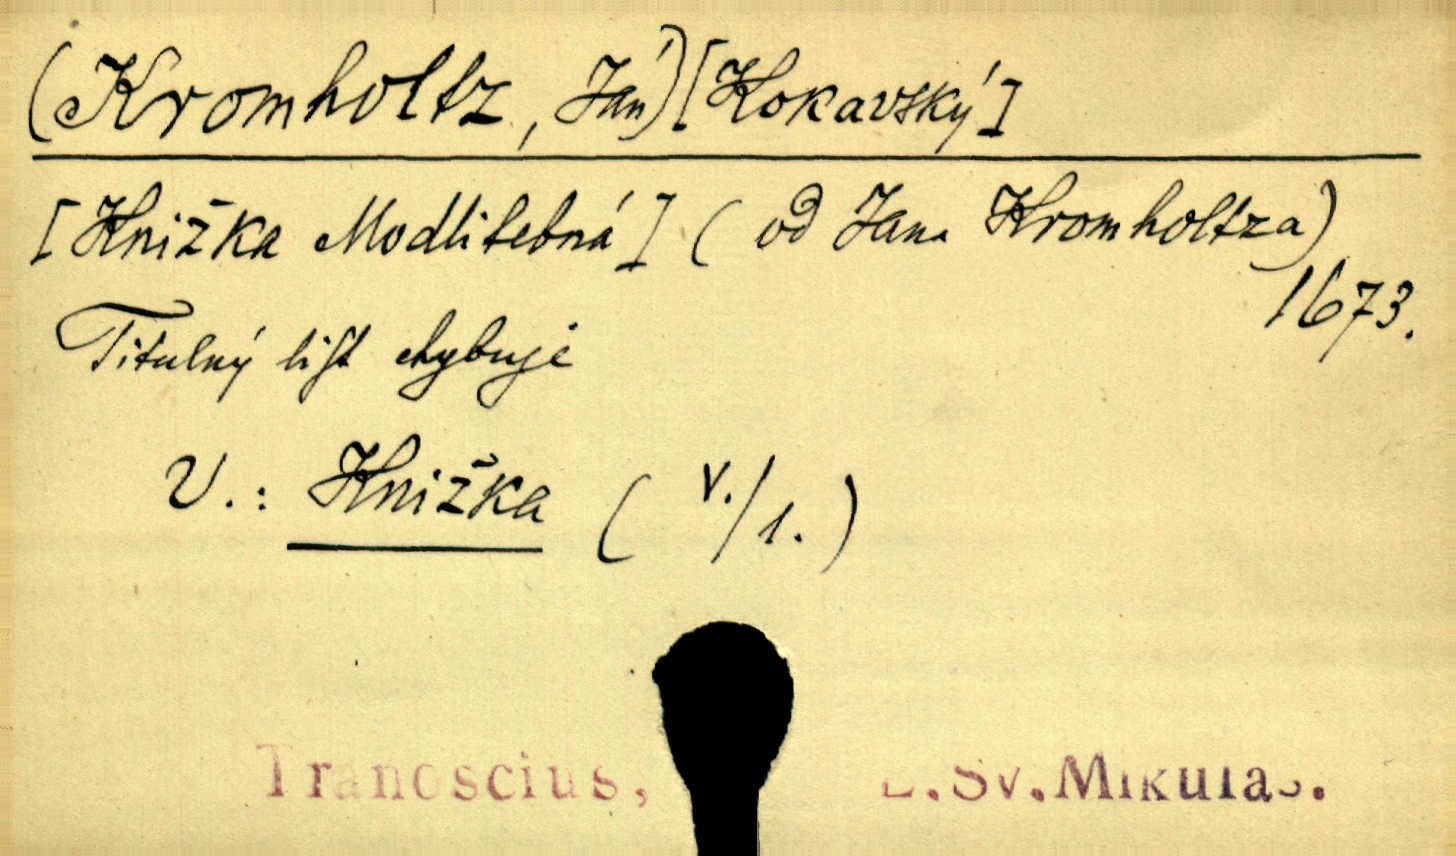 (Kromholtz, Ján) [Kokavský]
[Knižka Modlitebná] (od Jana Kromholtza)
1673.
Titulný list chybuje
V.: Knižka (V./1.)
Tranoscius, L.Sv.Mikuláš.